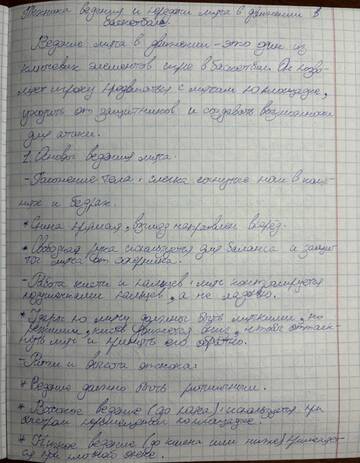 Техника ведения и передачи мяча в движении в
баскетболе.
Ведение мяча в движении - это один из
ключевых элементов игры в баскетбол. Он позво-
ляет игроку продвигаться с мячом по площадке,
уходить от защитников и создавать возможности
для атаки.
1. Основы ведения мяча.
- Положение тела: слегка согнутые ноги в коле-
нях и бедрах.
* Спина прямая, взгляд направлен вперед.
* Свободная рука используется для баланса и защи-
ты мяча от соперника.
- Работа кисти и пальцев: мяч контролируется
подушечками пальцев, а не ладонью.
* Удары по мячу должны быть мягкими, но
кисть движется вниз, чтобы оттолк-
нуть мяч и принять его обратно.
- Ритм и высота отскока:
* Ведение должно быть ритмичным.
* Высокое ведение (до пояса): используется при
перемещении по площадке.
* Низкое ведение (до колена или ниже) применяет-
ся при